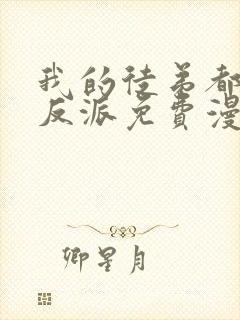 我的徒弟都
反派免費漫
卿星月